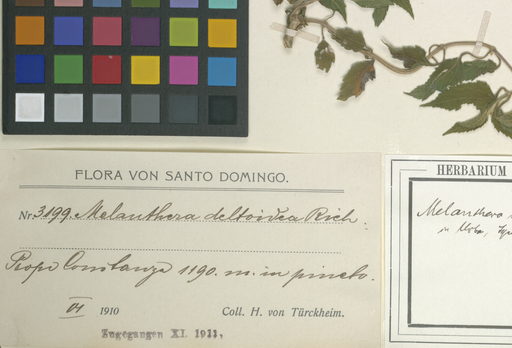 FLORA VON SANTO DOMINGO.
Nr. 3199. Melanthera deltoidea Rich.
Prope Constanza 1190. m. in pineto.
VI 1910 Coll. H. von Türckheim.
Zugegangen XI. 1911.
HERBARIUM
Melanthera
in Urb.,